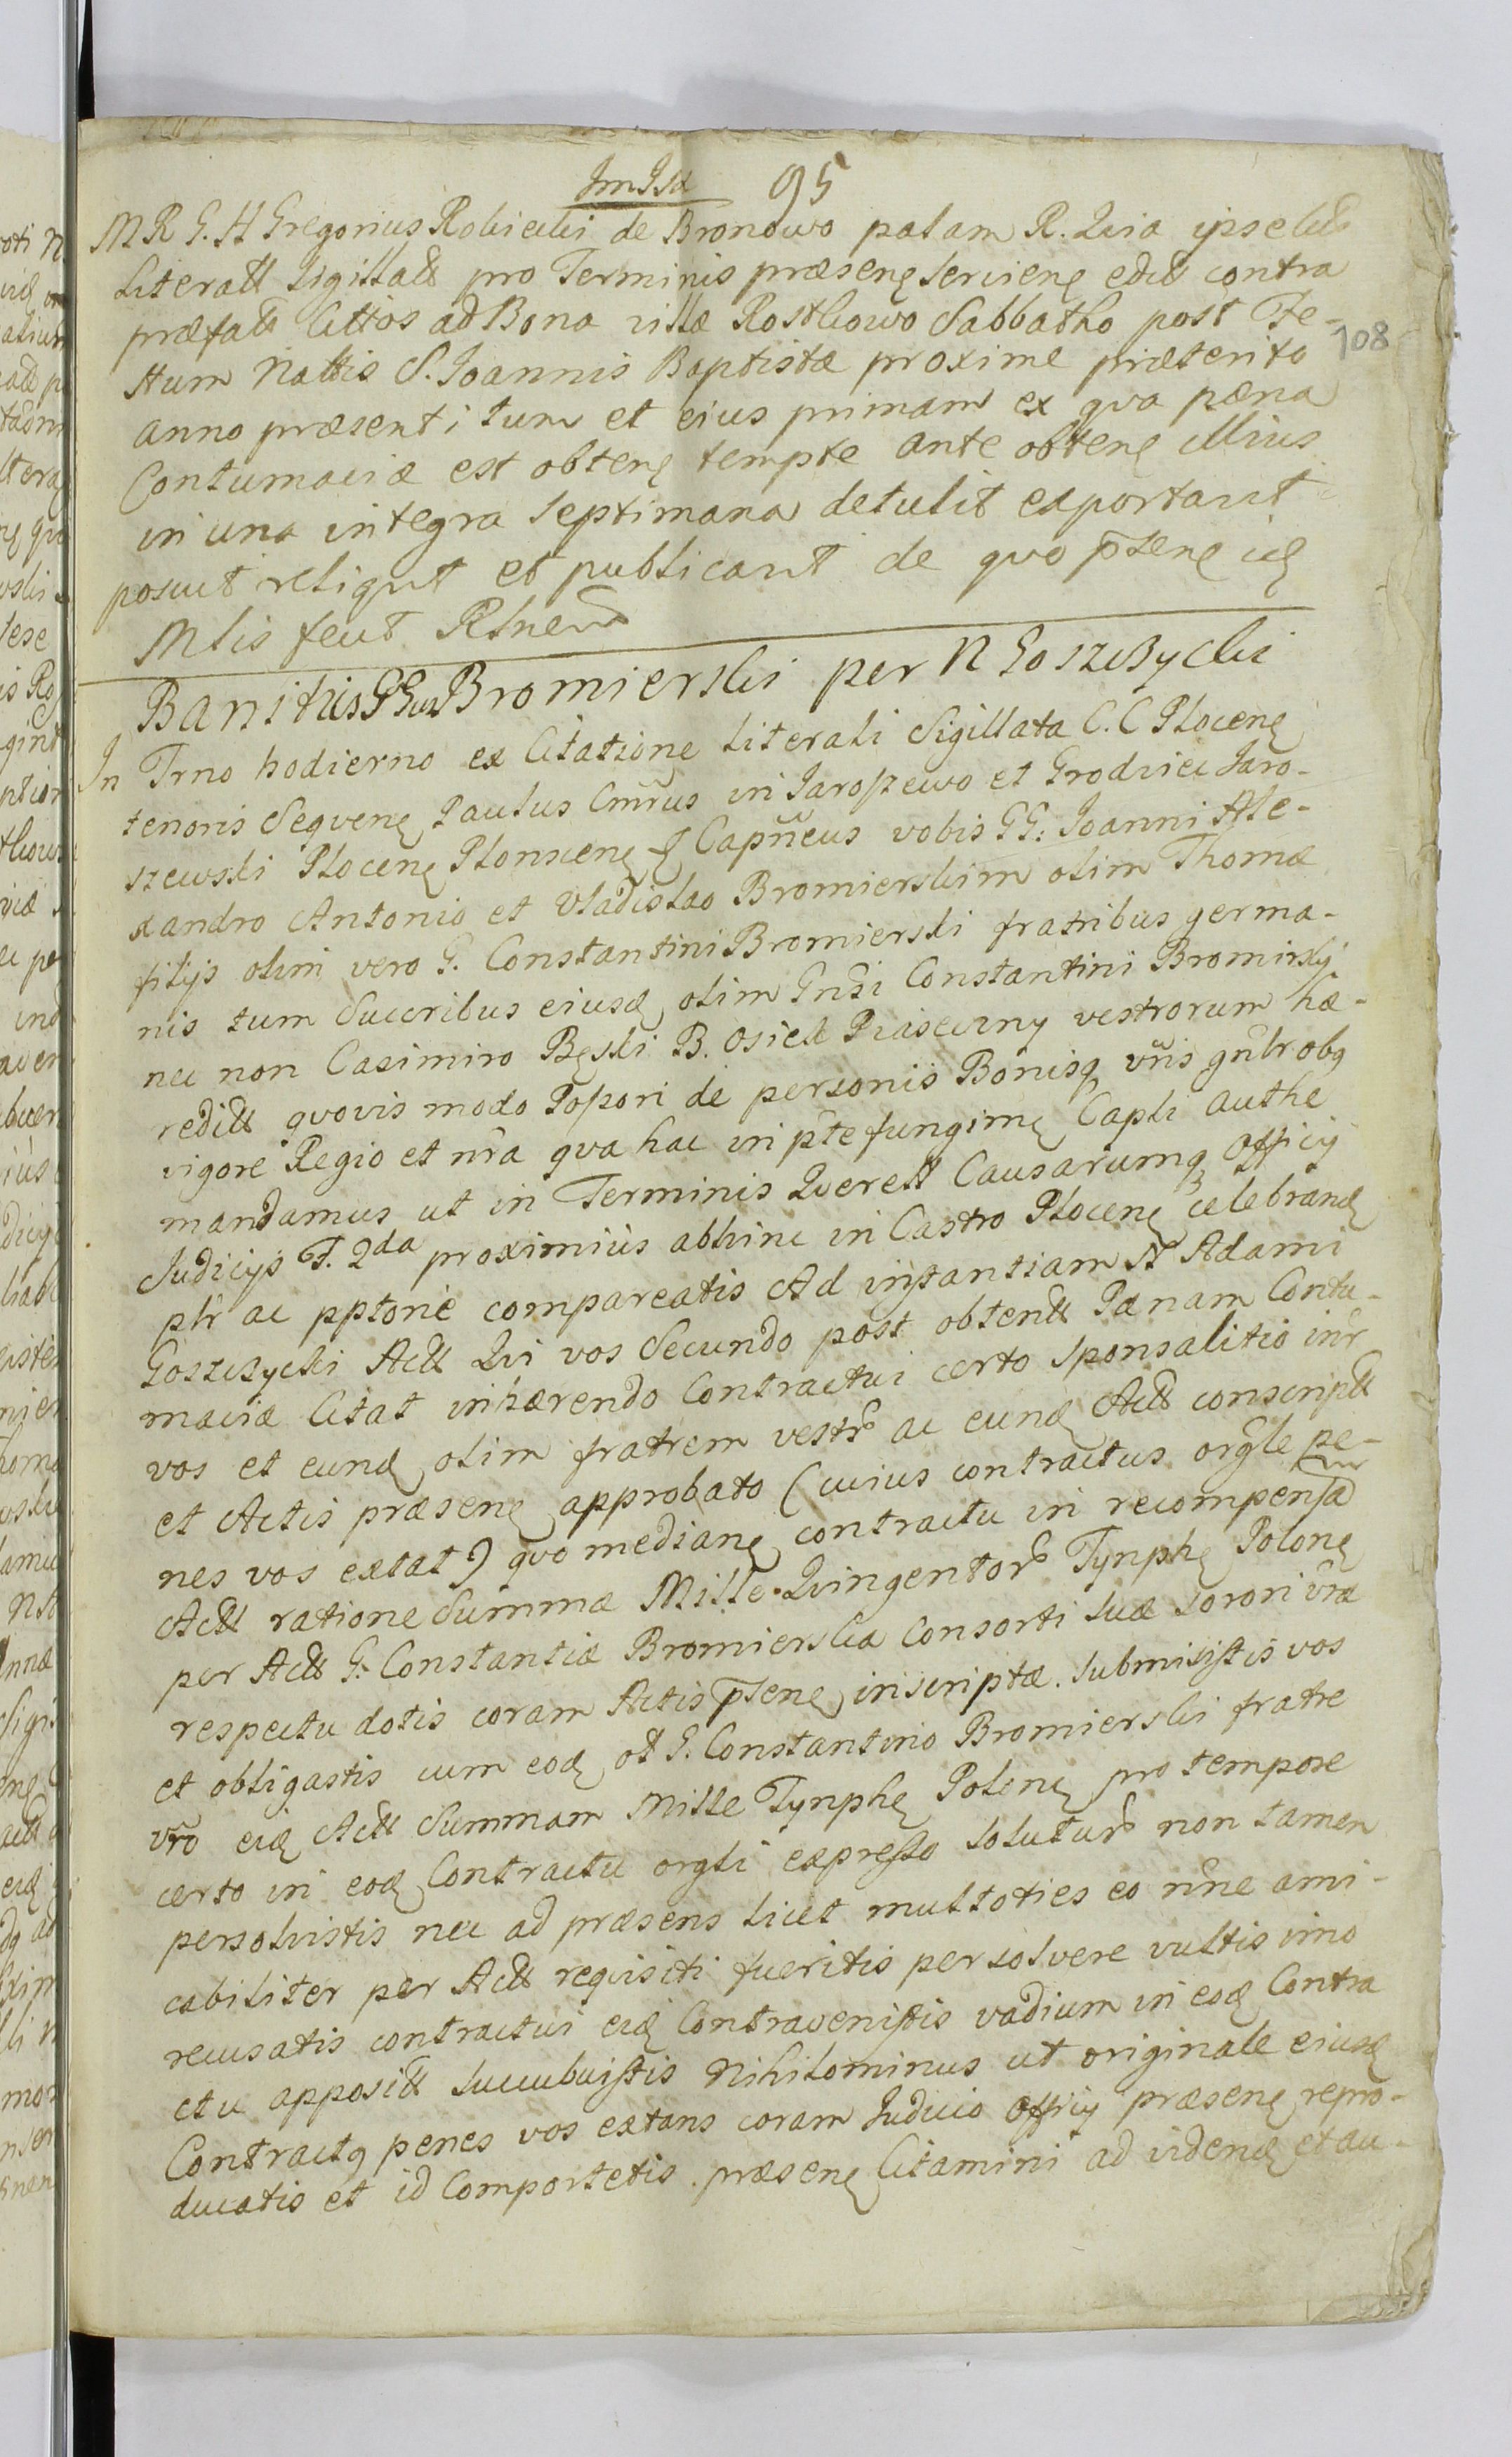 95
MRG. H Gregorius Robiecki de Bronowo palam R. Quia ipse
literall sigillall pro Terminis præsenę servienę edit contra
præfatt Cittos ad Bona villæ Rostkowo Sabbatho post Fe-
108
stum Nattis S. Joannis Baptistæ proxime præterito
anno præsenti tum et eius primam ex qva pæna
Contumaciæ est obtenę tempte ante obtenę illius
in una integra septimana detulit exportavit
posuit reliqut et publicavit de qvo pꝛsenę
Mlis fecit Rlnem
Banitus GGrum Bromierski per N Goszczycki
In Trno hodierno ex Citatione literali Sigillata C. C Plocenę
tenoris Seqvenę Paulus in Jaroszewo et Grodziec Jaro-
szewski Plocenę Plonscenę Capneus vobis GG: Joanni Ale-
xandro Antonio et Vladislao Bromierskim olim Thomæ
filijs olim vero G. Constantini Bromierski fratribus germa-
nis tum Succribus eiusd olim Gnsi Constantini Bromirskij
nec non Casimiro Bęski B. Osiek Piaseczny vestrorum hæ-
redill qvovis modo Popori de personis Bonisq vris gnlr obq
vigore Regio et nra qva hac in pte fungimę Capli authe
mandamus ut in Terminis Querell Causarumq Officij
Judicijs F. 2da proximius abhinc in Castro Plocenę celebrand
plr ac pptorie compareatis Ad instantiam N Adami
Goszczycki Actt Qui vos Secundo post obtentt Pænam Contu-
maciæ Citat inhærendo Contractui certo sponsalitio intr
vos et eund olim fratrem vestr ac eund Actt conscriptt
et Actis præsenę approbato (cuius contractus orgle pe-
nes vos extat) qvo medianę contractu in recompensam
Actt ratione Summæ Mille Quingentor Tynphę Polonę
per Actt G. Constantiæ Bromierska Consorti suæ sorori vræ
respectu dotis coram Actis pꝛsenę inscriptæ. submisistis vos
et obligastis cum eod ol G. Constantino Bromierski fratre
vro eid Actt Summam Mille Tynphę Polonę pro tempore
certo in eod Contractu orgli expresso soluturr non tamen
persolvistis nec ad præsens licet multoties eo nne ami-
cabiliter per Actt reqvisiti fueritis persolvere vultis imo
recusatis contractui eid Contravenistis vadium in eod Contra
ctu apposittt succubuistis Nihilominus ut originale eiusd
Contractq penes vos extans coram Judicio Officij præsenę repro-
ducatis et id Comportetis. præsenę Citamini ad vidend et au-